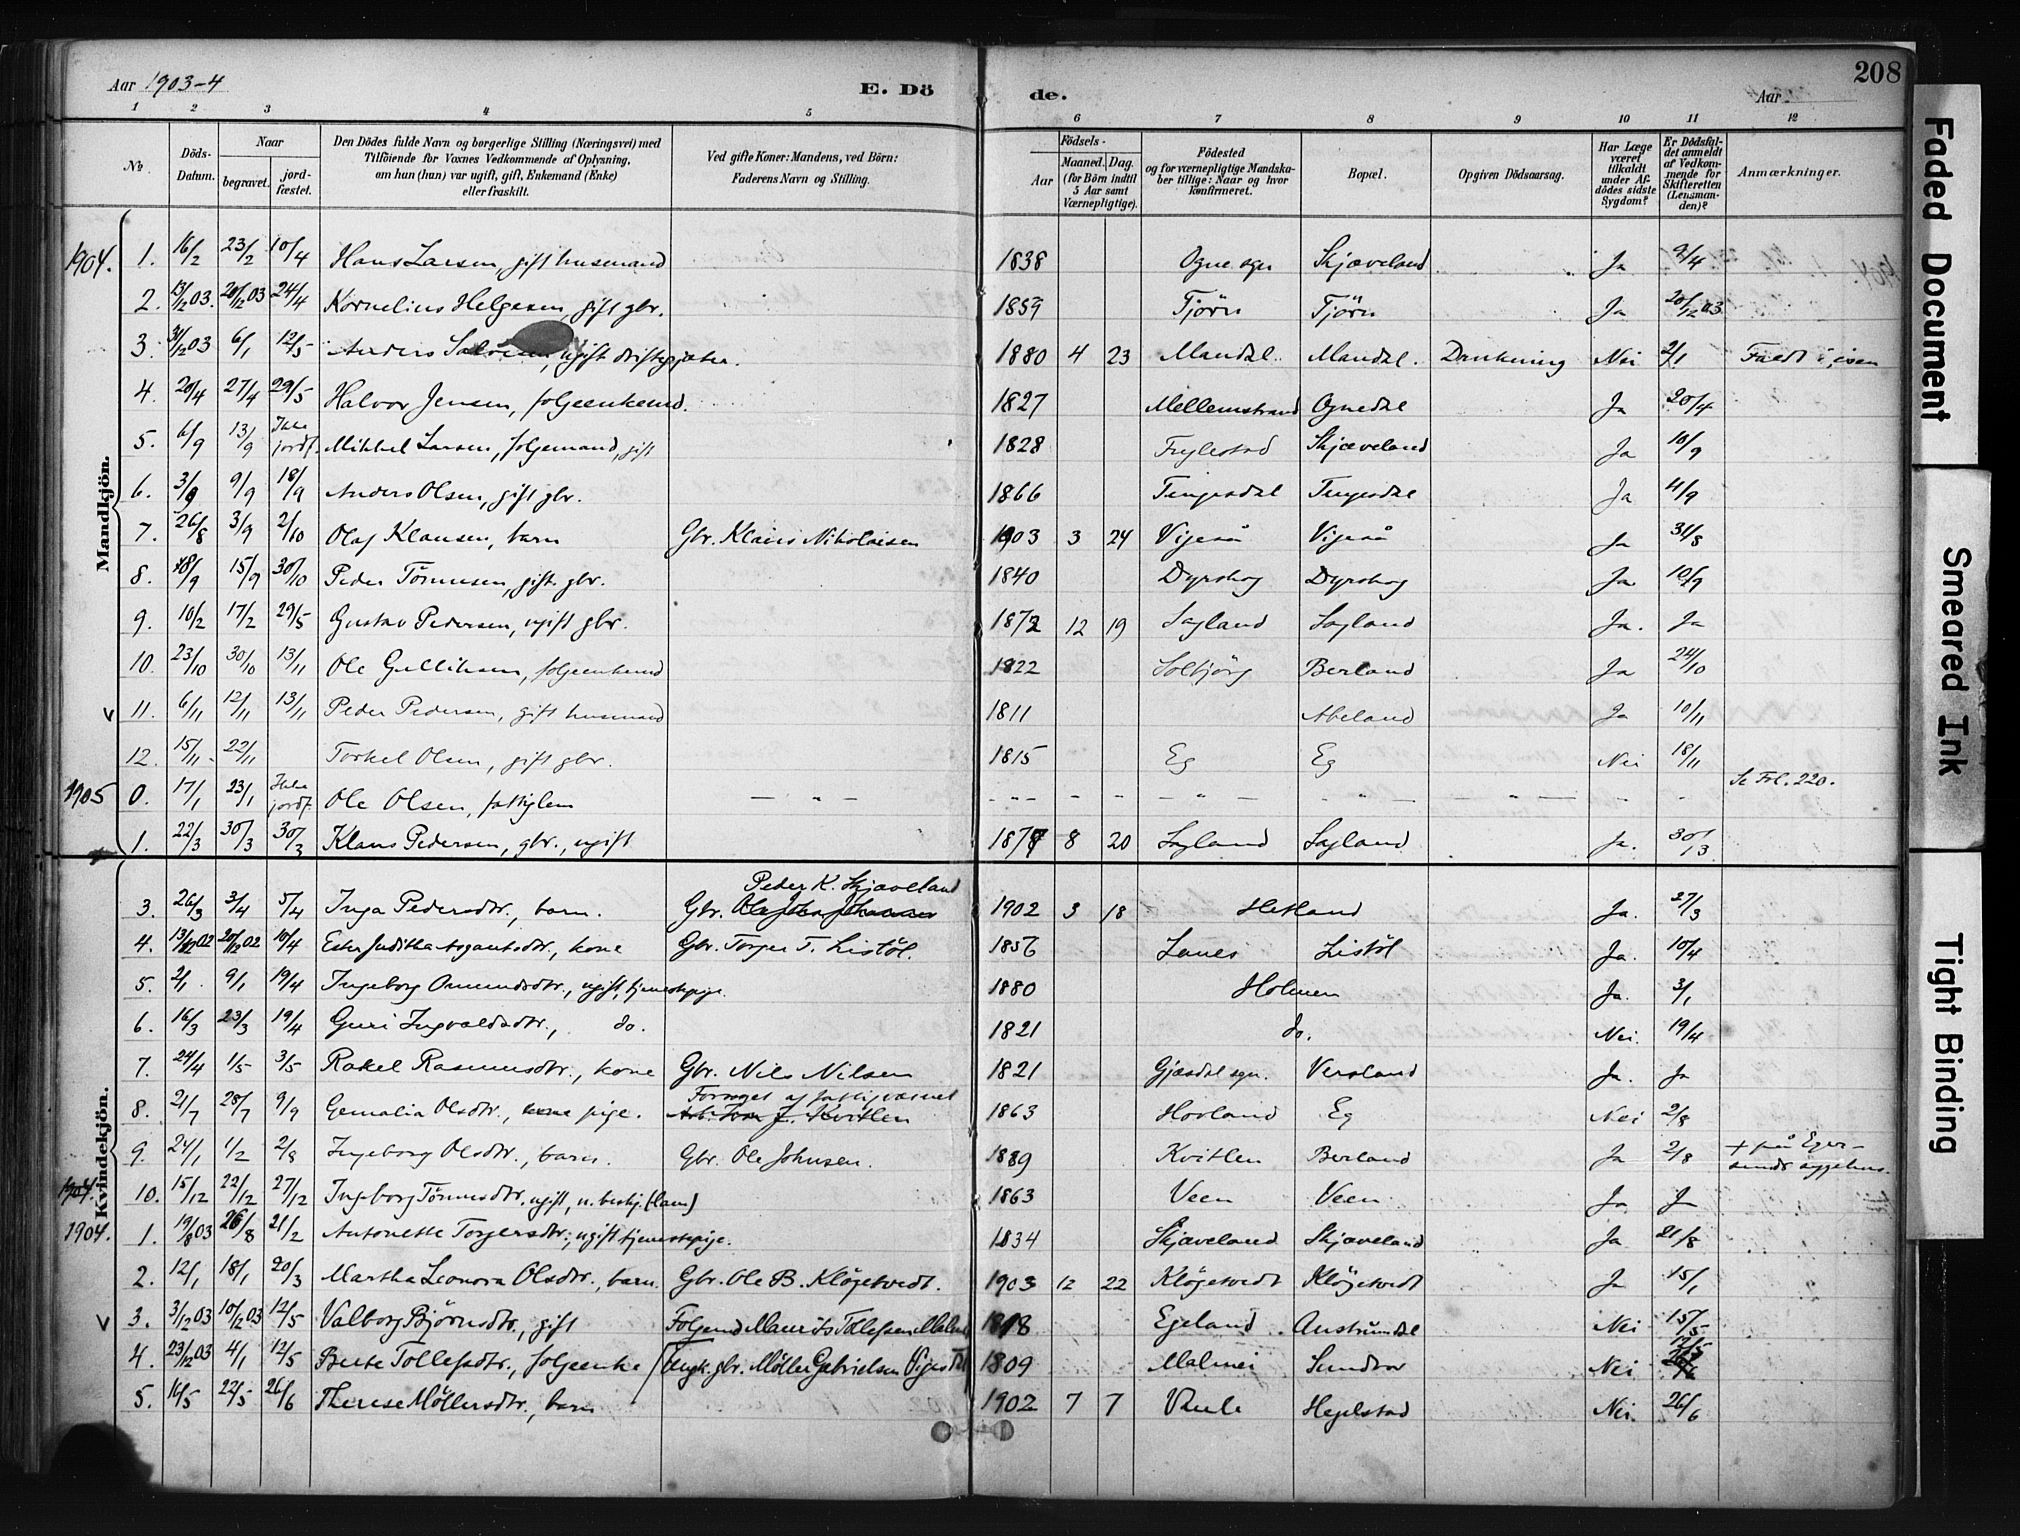 Aar 1903-4
E. Dö
de.
Aar
208
1 2 3 4 5 6 7 8 9 10 11 12
No.
Döds-Datum.
Naar
begravet.
jordfæstet.
Den Dödes fulde Navn og borgerlige Stilling (Næringsvei) med
Tilföiende for Voxnes Vedkommende af Oplysning,
om han (hun) var ugift, gift, Enkemand (Enke)
eller fraskilt.
Ved gifte Koner: Mandens, ved Börn:
Faderens Navn og Stilling.
Födsels-
Aar
Maaned. Dag.
(for Börn indtil
5 Aar samt
Værnepligtige).
Födested
og for værnepligtige Mandskaber tillige: Naar og hvor
konfirmeret.
Bopæl.
Opgiven Dödsaarsag.
Har Læge
været
tilkaldt
under Afdödes sidste
Sygdom?
Er Dödsfaldet anmeldt
af Vedkommende for
Skifteretten
(Lensmanden)?
Anmærkninger.
Mandkjön.
1904. 1. 16/2 23/2 10/4 Hans Larsen, gift husmand 1838 Ogne sgn Skjæveland Ja 9/4
2. 13/12 03. 20/12 03 24/4 Kornelius Helgesen, gift gbr. 1859 Tjörn Tjörn Ja 20/12 03
3. 31/12 03 6/1 12/5 Anders ugift 1880 4 23 Mandal Mandal. Drukning Nei 2/1 Faldt i isen
4. 20/4 27/4 29/5 Halvor Jensen, folgeenkemd. 1827 Mellemstrand Ognedal Ja 20/4
5. 6/9 13/9 Ikke jordf. Mikkel Larsen, folgemand, gift 1828 Fuglestad Skjæveland Ja 10/9
6. 3/9 9/9 18/9 Anders Olsen, gift gbr. 1866 Tengesdal Tengesdal Ja 4/9
7. 26/8 3/9 2/10 Olaf Klausen, barn Gbr. Klaus Nikolaisen 1903 3 24 Vigeså Vigeså Ja 31/8
8. 8/9 15/9 30/10 Peder Tönnesen, gift gbr. 1840 Dyrskog Dyrskog Ja 10/9
9. 10/2 17/2 29/5 Gustav Pedersen, ugift gbr. 1872 12 19 Sagland Sagland Ja. Ja
10. 23/10 30/10 13/11 Ole Gulliksen, folgeenkemd 1822 Solbjörg Berland Ja 24/10
11. 6/11 12/11 13/11 Peder Pedersen, gift husmand 1811 Abeland Ja 10/11
12. 15/11 22/11 Torkel Olsen, gift gbr. 1815 Eg Eg Nei 18/11
1905 0. 17/1 23/1 Ikke jordf. Ole Olsen, fattiglem Se Frl. 220.
1. 22/3 30/3 30/3 Klaus Pedersen, gbr., ugift 1877 8 20 Sagland Sagland Ja. 30/3
Kvindekjön.
3. 26/3 3/4 5/4 Inga Pedersdtr., barn. Gbr. Peder K. Skjæveland 1902 3 18 Hetland Ja. 27/3
4. 13/12 02 20/12 02 10/4 Ester Juditha Asgautsdtr., kone Gbr. Torger T. Listöl. 1856 Lanes Listöl Ja. 10/4
5. 2/1 9/1 19/4 Ingeborg Omundsdtr., ugift, tjenestepige. 1880 Holmen Ja. 3/1
6. 16/3 23/3 19/4 Guri Ingvaldsdtr., do. 1821 do. Nei 19/4
7. 24/4 1/5 3/5 Rakel Rasmusdtr., kone Gbr. Nils Nilsen 1821 Gjæsdal sgn. Versland Ja. Ja
8. 21/7 28/7 9/9 Gemalia Olsdtr., kone pige. Forsørget af fattigvæsnet 1863 Hovland Eg Nei 2/8
9. 24/1 1/2 2/8 Ingeborg Olsdtr., barn. Gbr. Ole Johnsen. 1889 Kvitlen Berland Ja 2/8 + på Egersunds sygehus.
1904. 10. 15/12 22/12 27/12 Ingeborg Tönnesdtr. ugift, u. beskj. (lam) 1863 Veen Veen Ja Ja
1904. 1. 19/8 03 26/8 21/2 Antonette Torgersdtr., ugift tjenestepige. 1834 Skjæveland Skjæveland Ja 21/8
2. 12/1 18/1 20/3 Martha Leonora Olsdtr., barn. Gbr. Ole B. Kløgetvedt. 1903 12 22 Kløgetvedt Kløgetvedt Ja 15/1
3. 3/12 03 10/12 03 12/5 Valborg Bjørnsdtr., gift Folgemd Maurits Tollefsen 1818 Egeland Austrumdal Nei 15/5
4. 23/12 03 4/1 12/5 Berte Tollefsdtr., folgeenke 1809 Malmei Sundvor Nei
5. 16/5 22/5 26/6 Therese Möllersdtr., barn Ungk. gbr. Møller Gabrielsen 1902 7 7 Hegelstad Nei. 26/6
Faded Document
Smeared Ink
Tight Binding